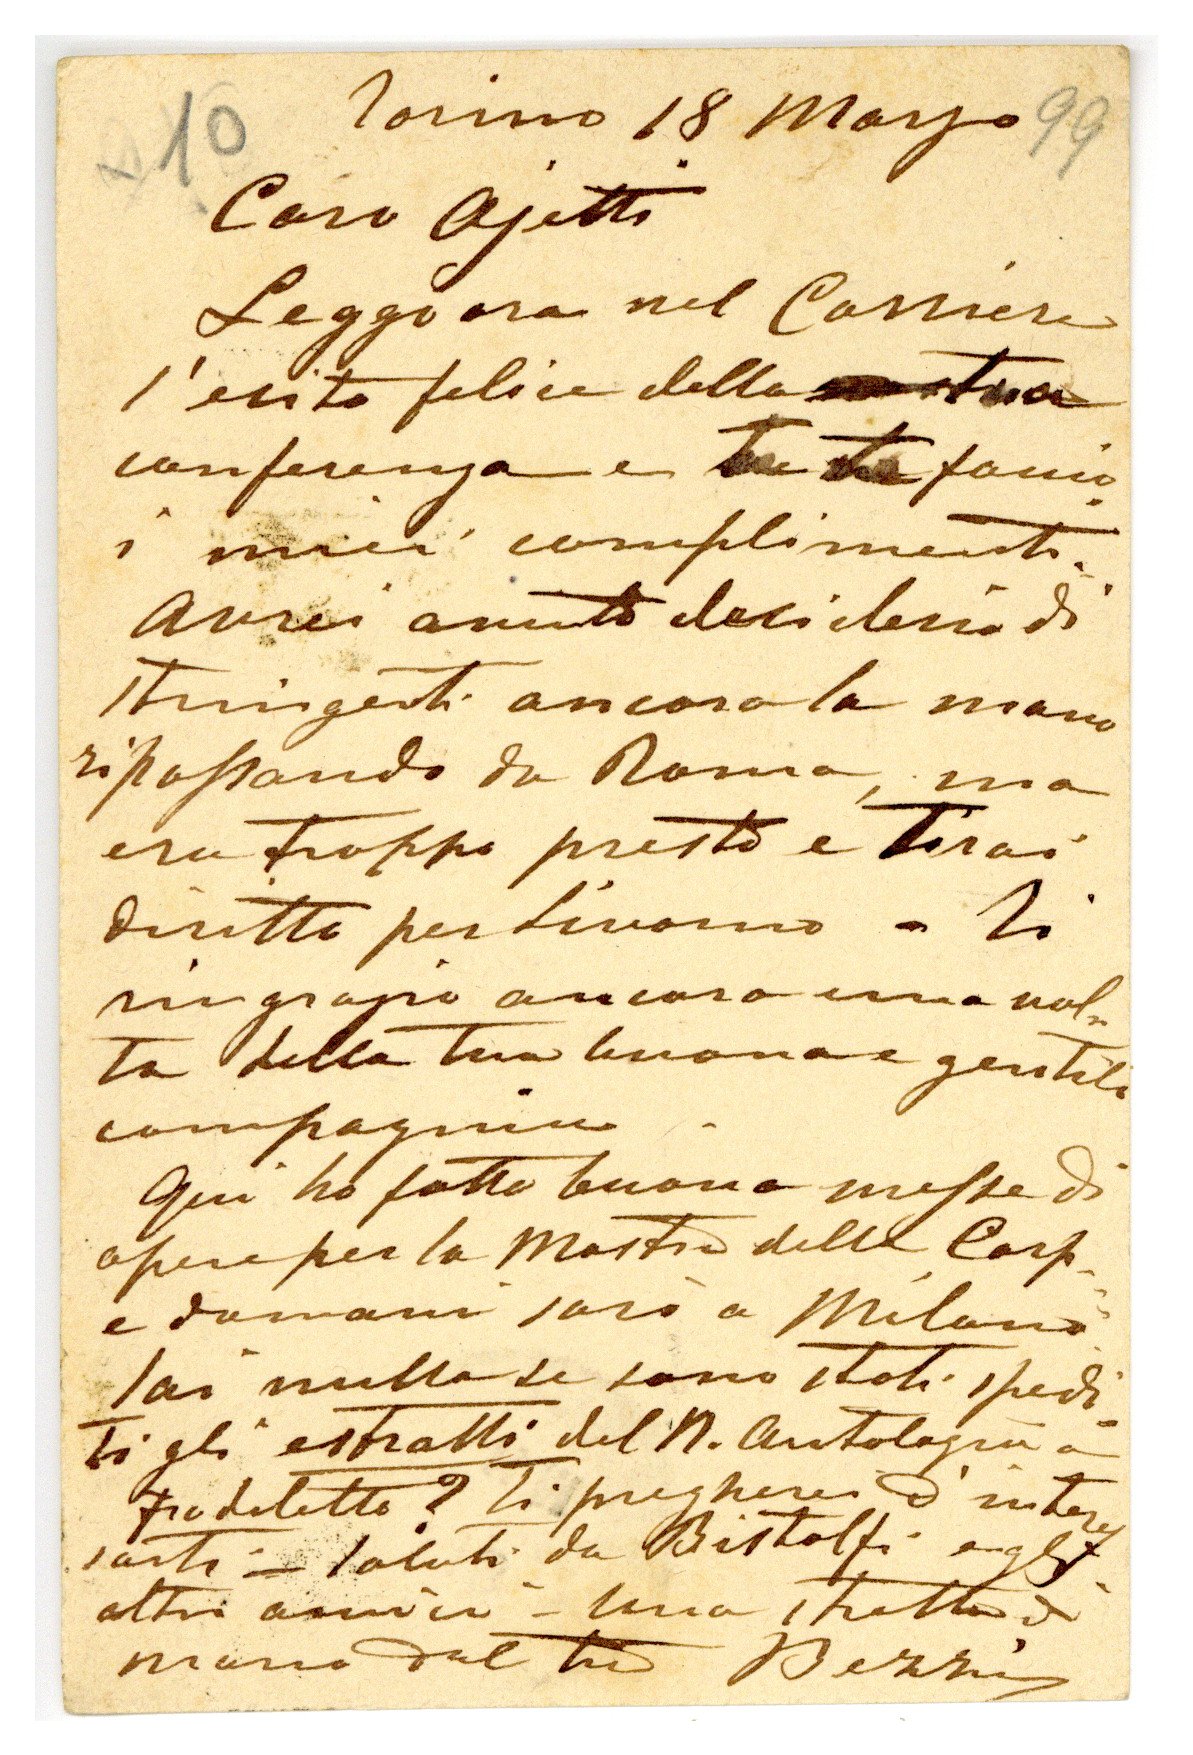 10
Torino 18 Marzo 99
Caro Ojetti
Leggo ora nel Corriere
l'esito felice della tua
conferenza e te ne faccio
i miei complimenti.
Avrei avuto desiderio di
stringerti ancora la mano
ripassando da Roma, ma
era troppo presto e tirai
diritto per Livorno - Ti
ringrazio ancora una vol-
ta della tua buona e gentile
compagnia.
Qui ho fatto buona messe di
opere per la Mostra delle Corp.
e domani sarò a Milano
Sai nulla se sono stati spedi-
ti gli estratti del N. Antologia a
Fradeletto? Ti pregherei d'interes
sarti = saluti da Bistolfi e gli
altri amici - Una stretta di
mano dal tuo Bezzi